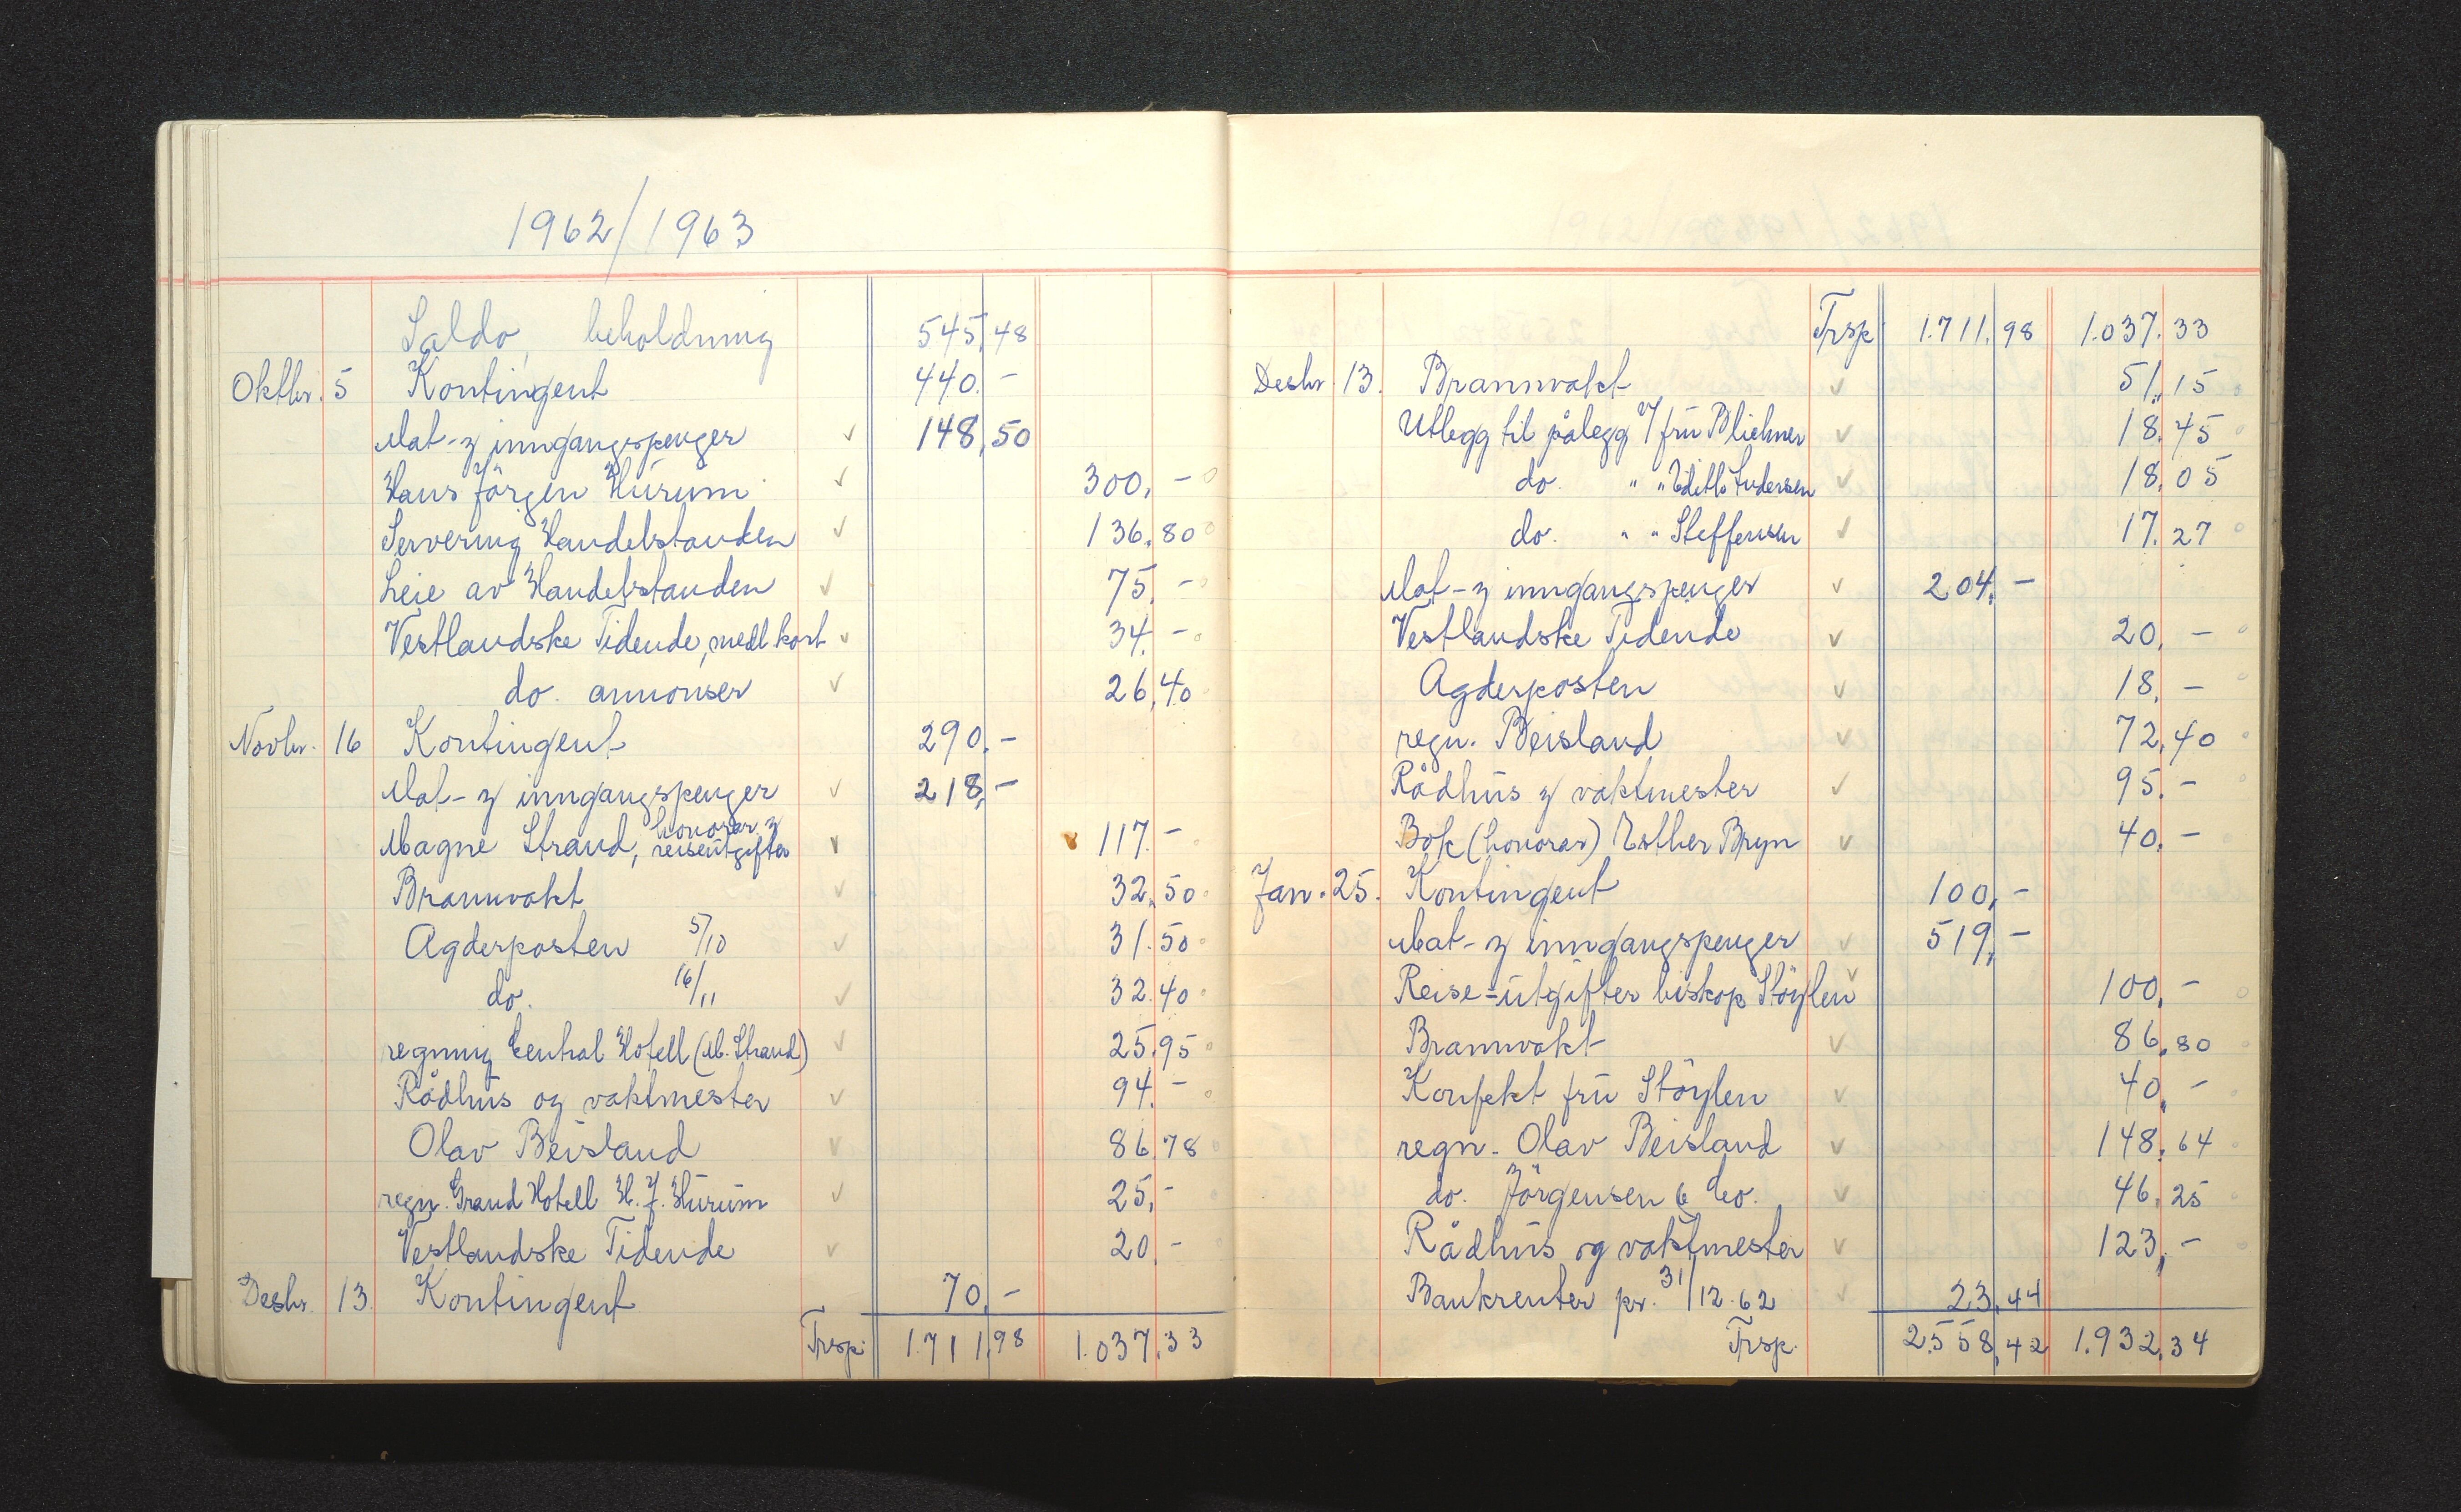 1962/1963
Saldo, beholdning 545,48
Oktbr. 5 Kontingent 440.-
Mat- og inngangspenger ✓ 148,50
Hans Jörgen Hurum ✓ 300,-
Servering Handelstanden ✓ 136,80
Leie av Handelstanden ✓ 75.-
Vestlandske Tidende, medl kort ✓ 34.-
do. annonser ✓ 26,40
Novbr. 16 Kontingent 290.-
Mat- og inngangspenger ✓ 218,-
Magne Strand, honorar og reiseutgifter ✓ 117.-
Brannvakt ✓ 32,50
Agderposten 5/10 ✓ 31.50
do. 16/11 ✓ 32.40
regning Central Hotell (M. Strand) ✓ 25.95
Rådhus og vaktmester ✓ 94.-
Olav Beisland ✓ 86,78
regn. Grand Hotell H. J. Hurum ✓ 25,-
Vestlandske Tidende ✓ 20,-
Desbr. 13 Kontingent 70,-
Trsp: 1.711,98 1.037,33
Trsp: 1.711,98 1.037.33
Desbr. 13. Brannvakt ✓ 51,15
Utlegg til pålegg v/ fru Blichner ✓ 18.45
do. " " Edith Andersen ✓ 18,05
do. " " Steffensen ✓ 17.27
Mat- og inngangspenger ✓ 204.-
Vestlandske Tidende ✓ 20,-
Agderposten ✓ 18,-
regn. Beisland ✓ 72,40
Rådhus og vaktmester ✓ 95.-
Bok (honorar) Esther Bryn ✓ 40.-
Jan. 25. Kontingent 100,-
Mat- og inngangspenger ✓ 519,-
Reise-utgifter biskop Stöylen ✓ 100,-
Brannvakt ✓ 86,80
Konfekt fru Stöylen ✓ 40,-
regn. Olav Beisland ✓ 148,64
do. Jörgensen & Co. ✓ 46,25
Rådhus og vaktmester ✓ 123,-
Bankrenter pr. 31/12.62 ✓ 23,44
Trsp. 2.558,42 1.932,34